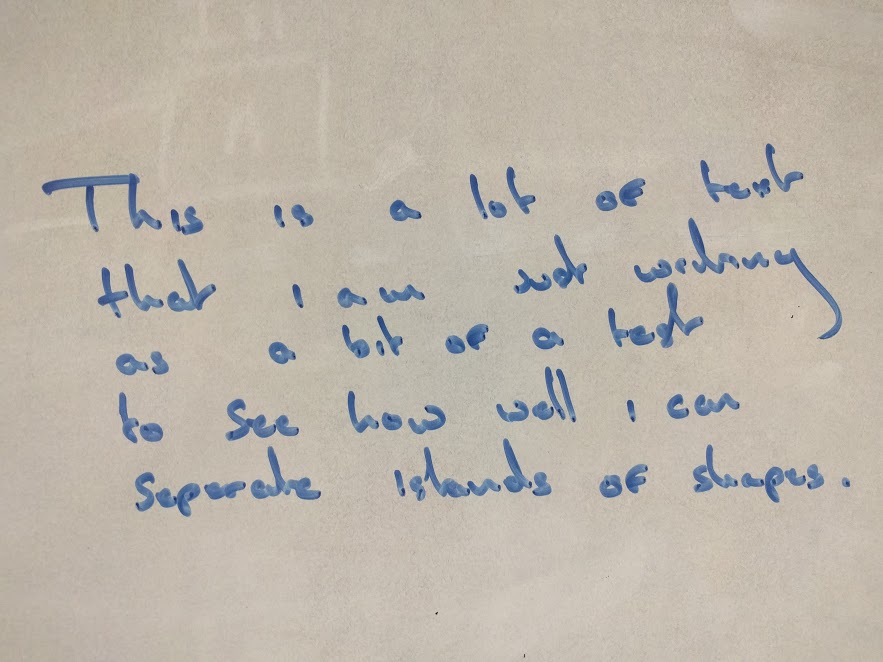 This is a lot of text
that i am just writing
as a bit of a test
to see how well i can
separate islands of shapes.